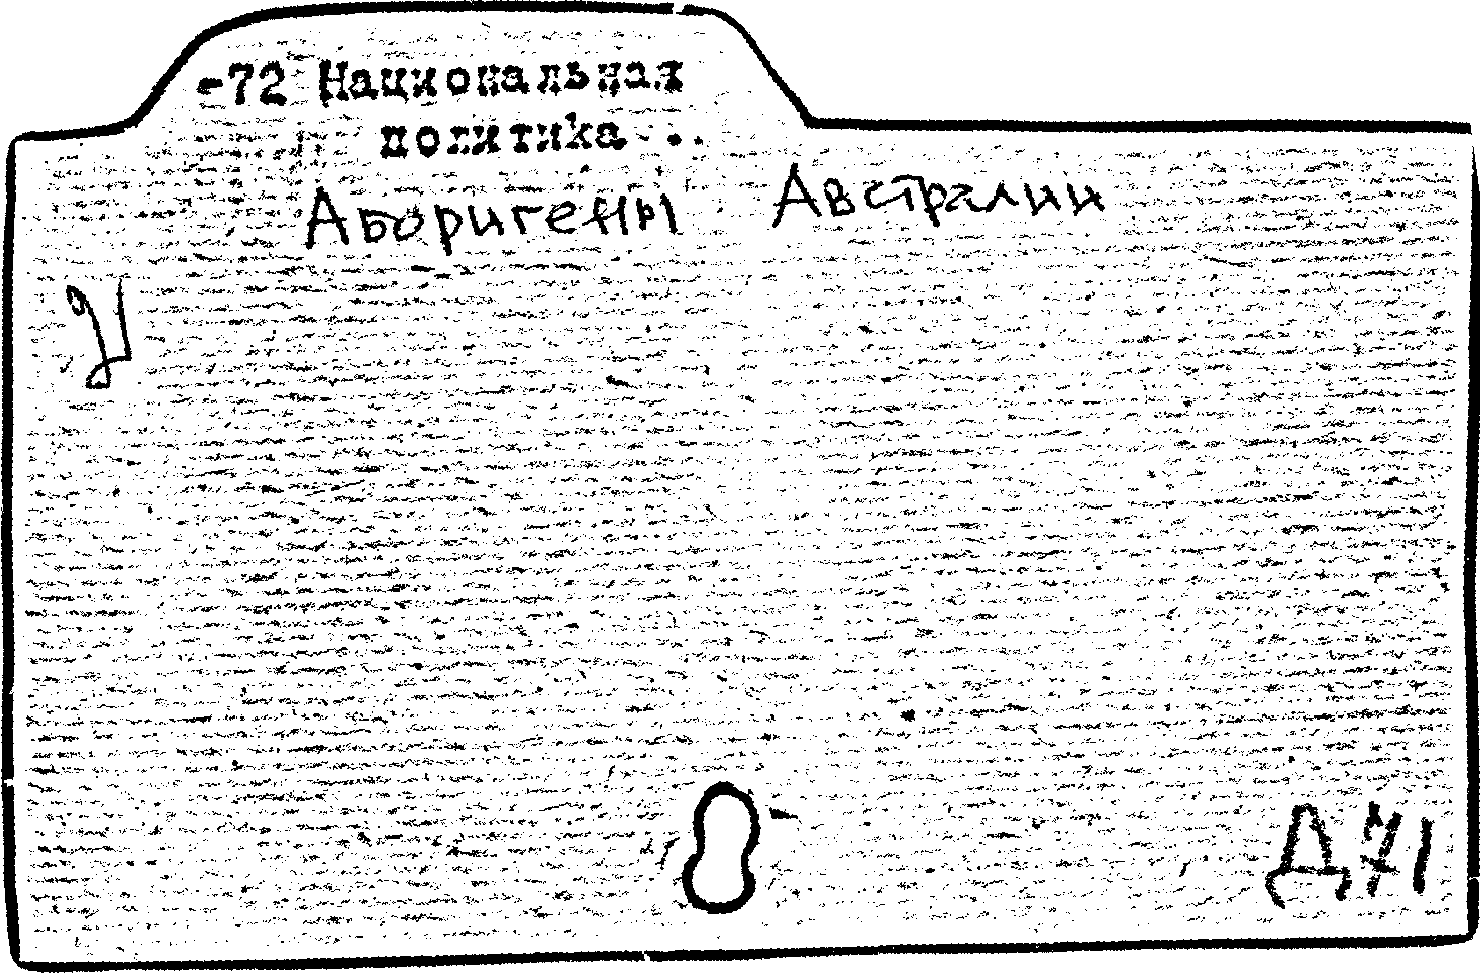 -72 Национальная
политика ..
Аборигены Австралии
Д71